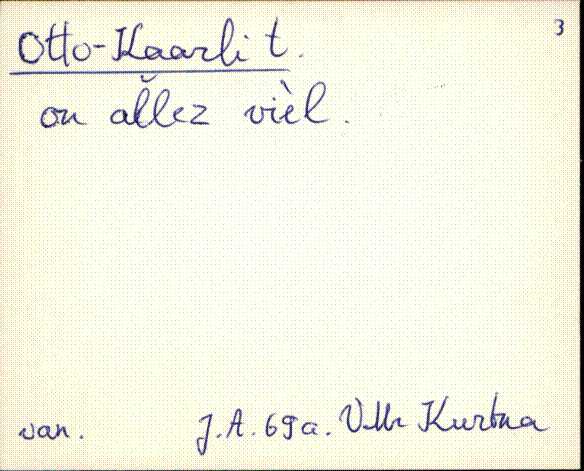 3
Otto-Kaarli t.
on al̆lez vièl.
van.
J.A. 69a. Kurtna